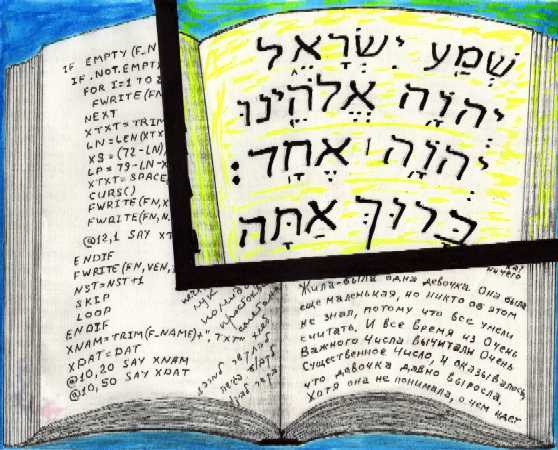 IF EMPTY (F_N
IF .NOT. EMPT
FOR I=1 TO
FWRITE(FN
NEXT
XTXT=TRIM
LN=LEN(XTX
XS=(72-LN)
LP=79-LN-X
XTXT=SPACE
CURS()
FWRITE(FN,X
FWRITE(FN,N
@12,1 SAY XT
ENDIF
FWRITE(FN,VEN,
NST=NST+1
SKIP
LOOP
ENDIF
XNAM=TRIM(F_NAME)+".TXT"
XDAT=DAT
@10,20 SAY XNAM
@10,50 SAY XDAT
שְׁמַע יִשְׂרָאֵל
יְהוָֹה אֱלֹהֵינוּ
יְהוָֹה אֶחָד:
בָּרוּךְ אַתָּה
ничего
Жила-была одна девочка. Она была
еще маленькая, но никто об этом
не знал, потому что все умели
считать. И все время из Очень
Важного Числа вычитали Очень
Существенное Число, и оказывалось,
что девочка давно выросла.
Хотя она не понимала, о чем идет